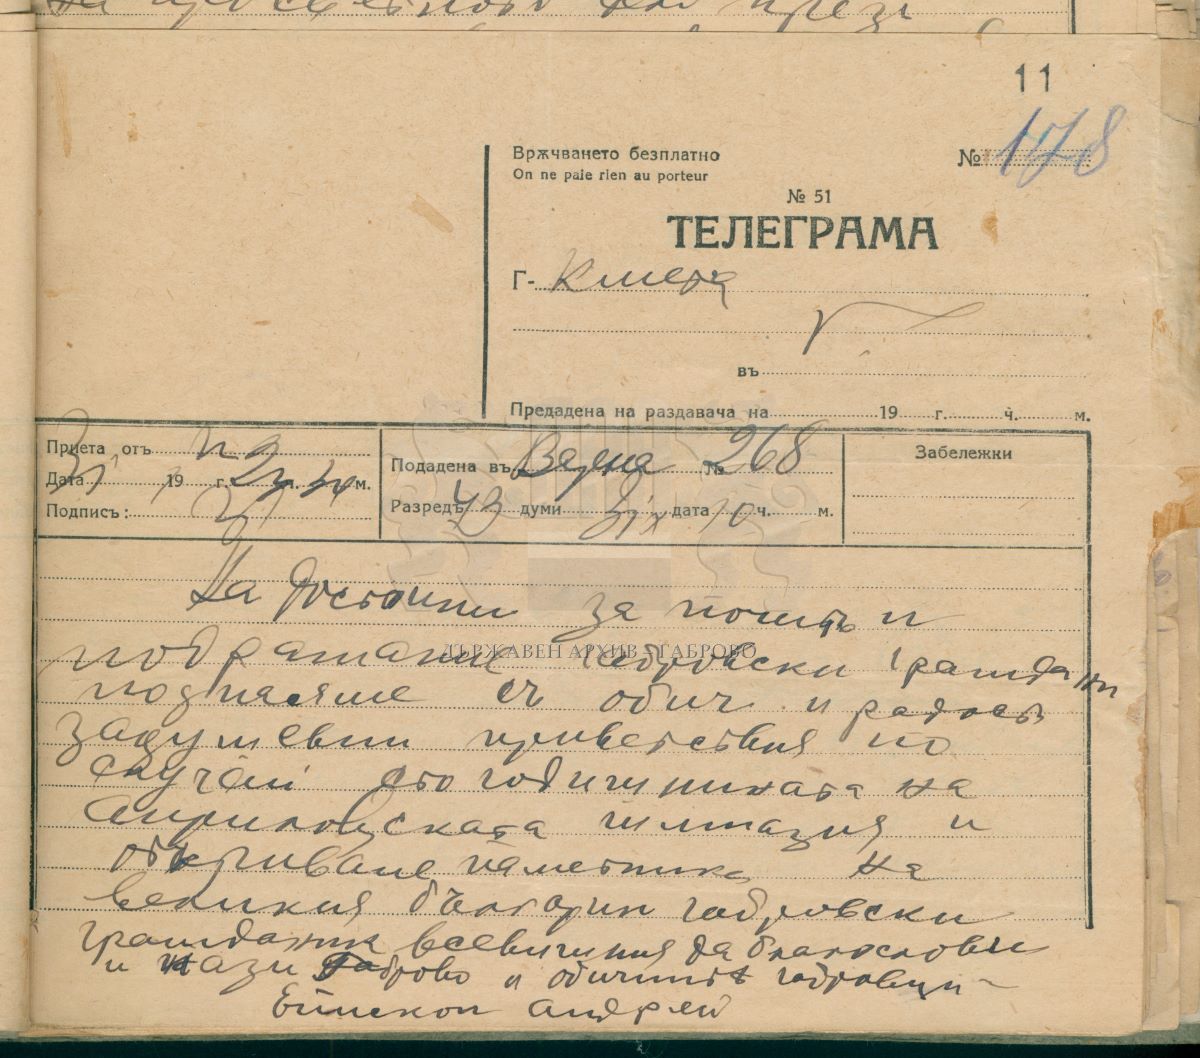 11
Врѫчването безплатно
On ne paie rien au porteur
№ 178
№ 51
ТЕЛЕГРАМА
Г- Кмета
въ
Предадена на раздавача на 19 г. ч. м.
Приета отъ
Дата 19 г. ч. м.
Подпись:
Подадена въ Варна № 268
Разредъ 43 думи 3/IX дата 10 ч. м.
Забележки
На достойни за почить и
подражание габровски граждани
поднасяме съ обич и радость
задушевни приветствия по
случай стогодишнината на
Априловската гимназия и
откриване паметника на
великия българин габровски
гражданин всевишния да благослови
и пази Габрово и обичнитѣ габровци -
Епископ Андрей
ДЪРЖАВЕН АРХИВ - ГАБРОВО